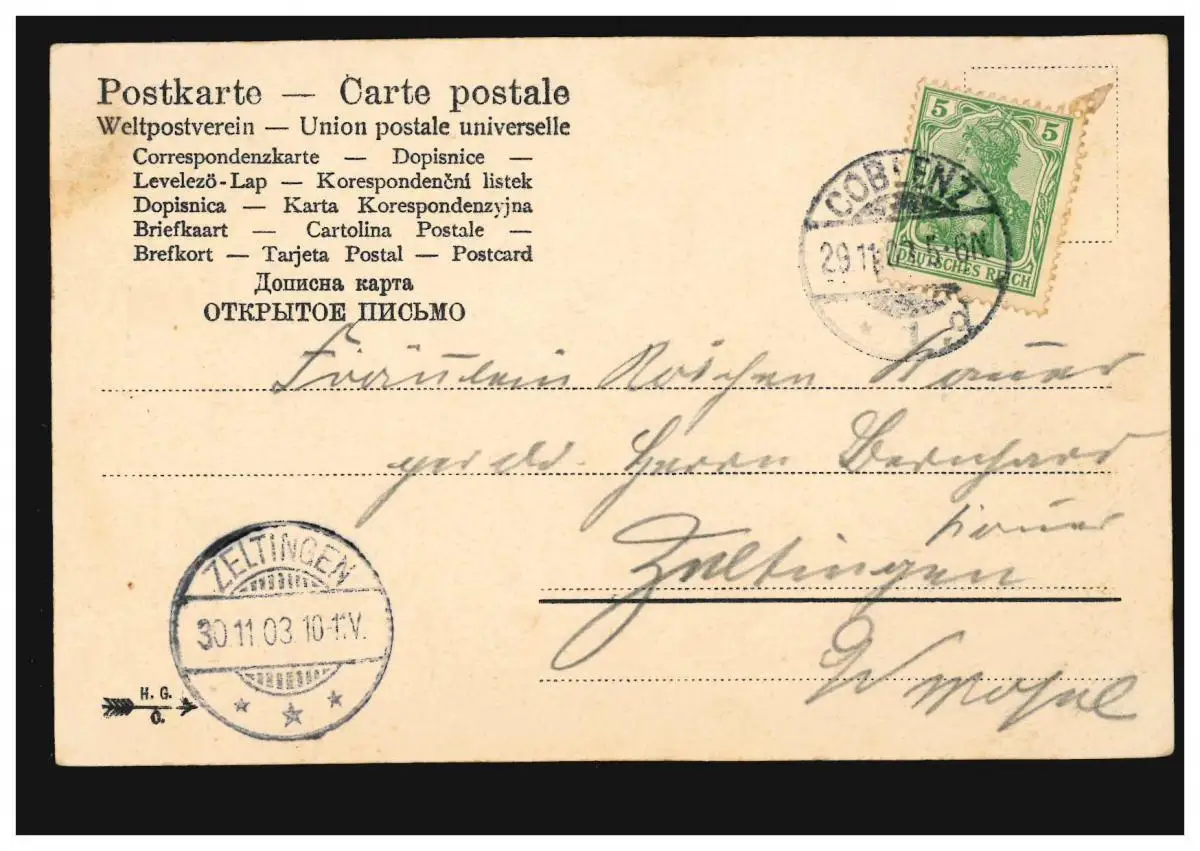 Postkarte — Carte postale
Weltpostverein — Union postale universelle
Correspondenzkarte — Dopisnice —
Levelező-Lap — Korespondenční listek
Dopisnica — Karta Korespondenzyjna
Briefkaart — Cartolina Postale —
Brefkort — Tarjeta Postal — Postcard
Дописна карта
ОТКРЫТОЕ ПИСЬМО
5 5
DEUTSCHES REICH
COBLENZ
29.11.03. 5-6N
* 1 d
Fräulein Röschen Kauer
Herrn Bernhard
Kauer
Zeltingen
Mosel
ZELTINGEN
30.11.03. 10-11V.
H. G.
O.